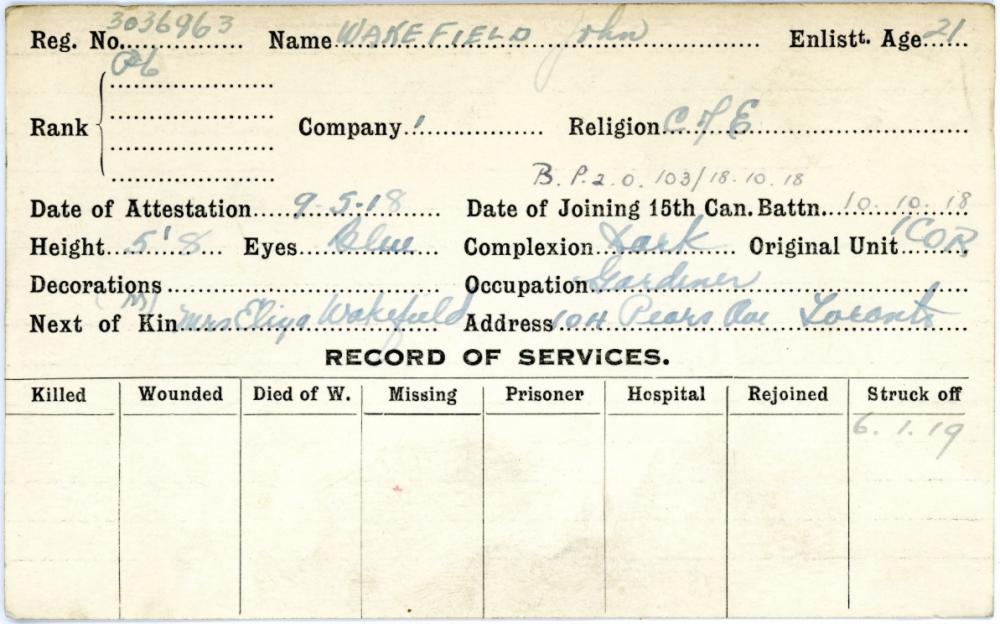 Reg. No. 3036963 Name WAKEFIELD John Enlistt. Age 21
Rank Company 1 Religion C of E
B. P. 2. O. 103/18.10.18
Date of Attestation 9-5-18 Date of Joining 15th Can. Battn. 10.10.18
Height 5'8 Eyes Blue Complexion Dark Original Unit 1COR
Decorations Occupation Gardiner
Next of Kin (M) Mrs Eliza Wakefield Address 104 Pears Ave Toronto
RECORD OF SERVICES.
Killed Wounded Died of W. Missing Prisoner Hospital Rejoined Struck off
6.1.19